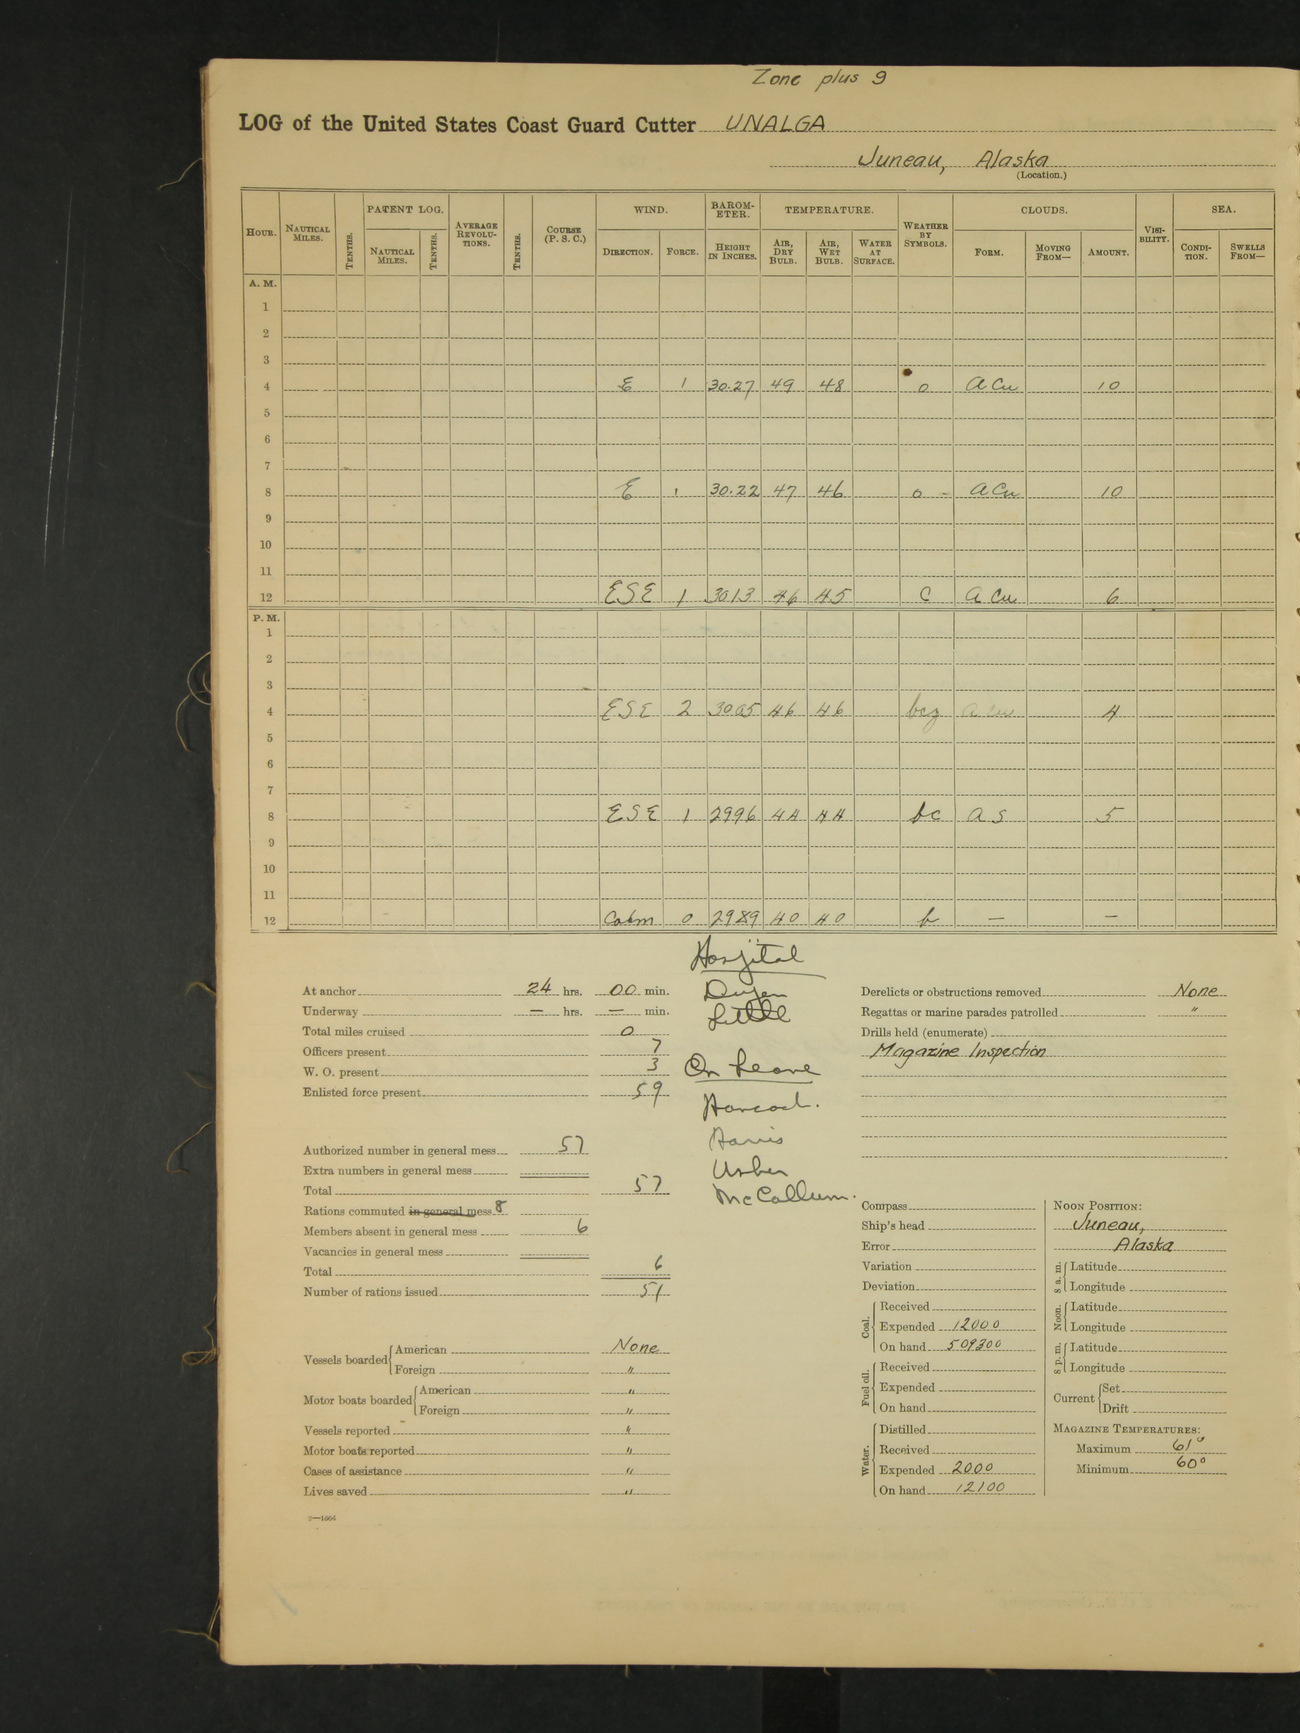 Zone plus 9
LOG of the United States Coast Guard Cutter UNALGA
Juneau, Alaska
(Location.)
HOUR. NAUTICAL MILES. TENTHS. PATENT LOG. NAUTICAL MILES. TENTHS. AVERAGE REVOLUTIONS. TENTHS. COURSE (P. S. C.) WIND. DIRECTION. FORCE. BAROMETER. HEIGHT IN INCHES. TEMPERATURE. AIR, DRY BULB. AIR, WET BULB. WATER AT SURFACE. WEATHER BY SYMBOLS. CLOUDS. FORM. MOVING FROM— AMOUNT. VISIBILITY. SEA. CONDITION. SWELLS FROM—
A. M.
1
2
3
4 E 1 30.27 49 48 o a cu 10
5
6
7
8 E 1 30.22 47 46 o a cu 10
9
10
11
12 ESE 1 3013 46 45 c a cu 6
P. M.
1
2
3
4 ESE 2 3005 46 46 bcz a cu 4
5
6
7
8 ESE 1 2996 44 44 bc a s 5
9
10
11
12 Calm 0 2989 40 40 b — —
At anchor 24 hrs. 00 min.
Underway — hrs. — min.
Total miles cruised 0
Officers present 7
W. O. present 3
Enlisted force present 59
Authorized number in general mess 57
Extra numbers in general mess
Total 57
Rations commuted in general mess 8
Members absent in general mess 6
Vacancies in general mess
Total 6
Number of rations issued 51
Vessels boarded American None
Foreign "
Motor boats boarded American "
Foreign "
Vessels reported "
Motor boats reported "
Cases of assistance "
Lives saved "
2—1664
Hospital
Little
On Leave
Harris
Usher
McCallum.
Derelicts or obstructions removed None
Regattas or marine parades patrolled "
Drills held (enumerate)
Magazine Inspection
Compass
Ship's head
Error
Variation
Deviation
Coal. Received
Expended 12000
On hand 509300
Fuel oil. Received
Expended
On hand
Water. Distilled
Received
Expended 2000
On hand 12100
NOON POSITION:
Juneau,
Alaska
8 a. m. Latitude
Longitude
Noon. Latitude
Longitude
8 p. m. Latitude
Longitude
Current Set
Drift
MAGAZINE TEMPERATURES:
Maximum 61°
Minimum 60°